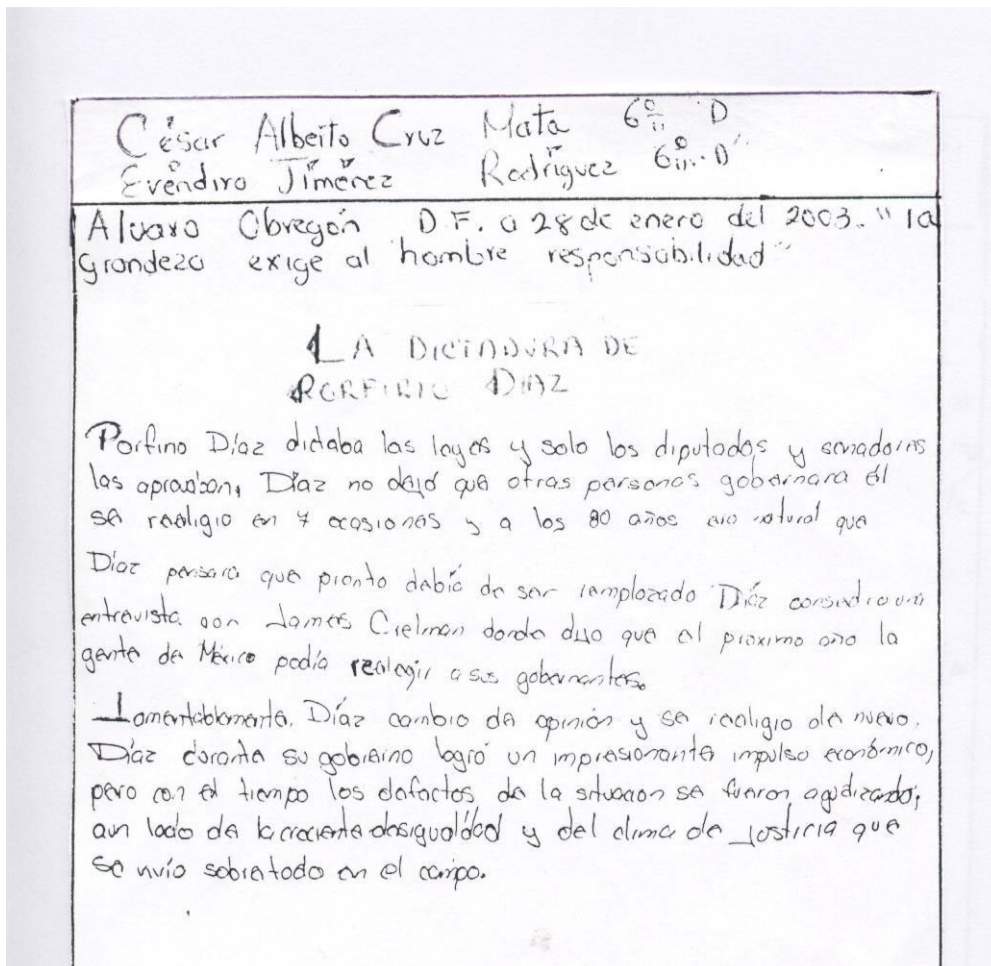 César Alberto Cruz Mata 6º D
Evéndiro Jiménez Rodríguez 6º D
Alvaro Obregón D.F. a 28 de enero del 2003. "la
grandeza exige al hombre responsabilidad"
LA DICTADURA DE
PORFIRIO DIAZ
Porfirio Díaz dictaba las leyes y solo los diputados y senadores
las aprovaban, Díaz no dejó que otras personas gobernara él
se reeligio en 7 ocasiones y a los 80 años era natural que
Díaz pensara que pronto debía de ser remplazado Díaz
entrevista con James Crelman donde dijo que el proximo año la
gente de México podía reelegir a sus gobernantes.
Lamentablemente. Díaz cambio de opinión y se reeligio de nuevo.
Díaz durante su gobierno logró un impresionante impulso económico,
pero con el tiempo los defectos de la situacion se fueron agudizando,
aun lado de la creciente desigualdad y del clima de justicia que
se sobretodo en el campo.